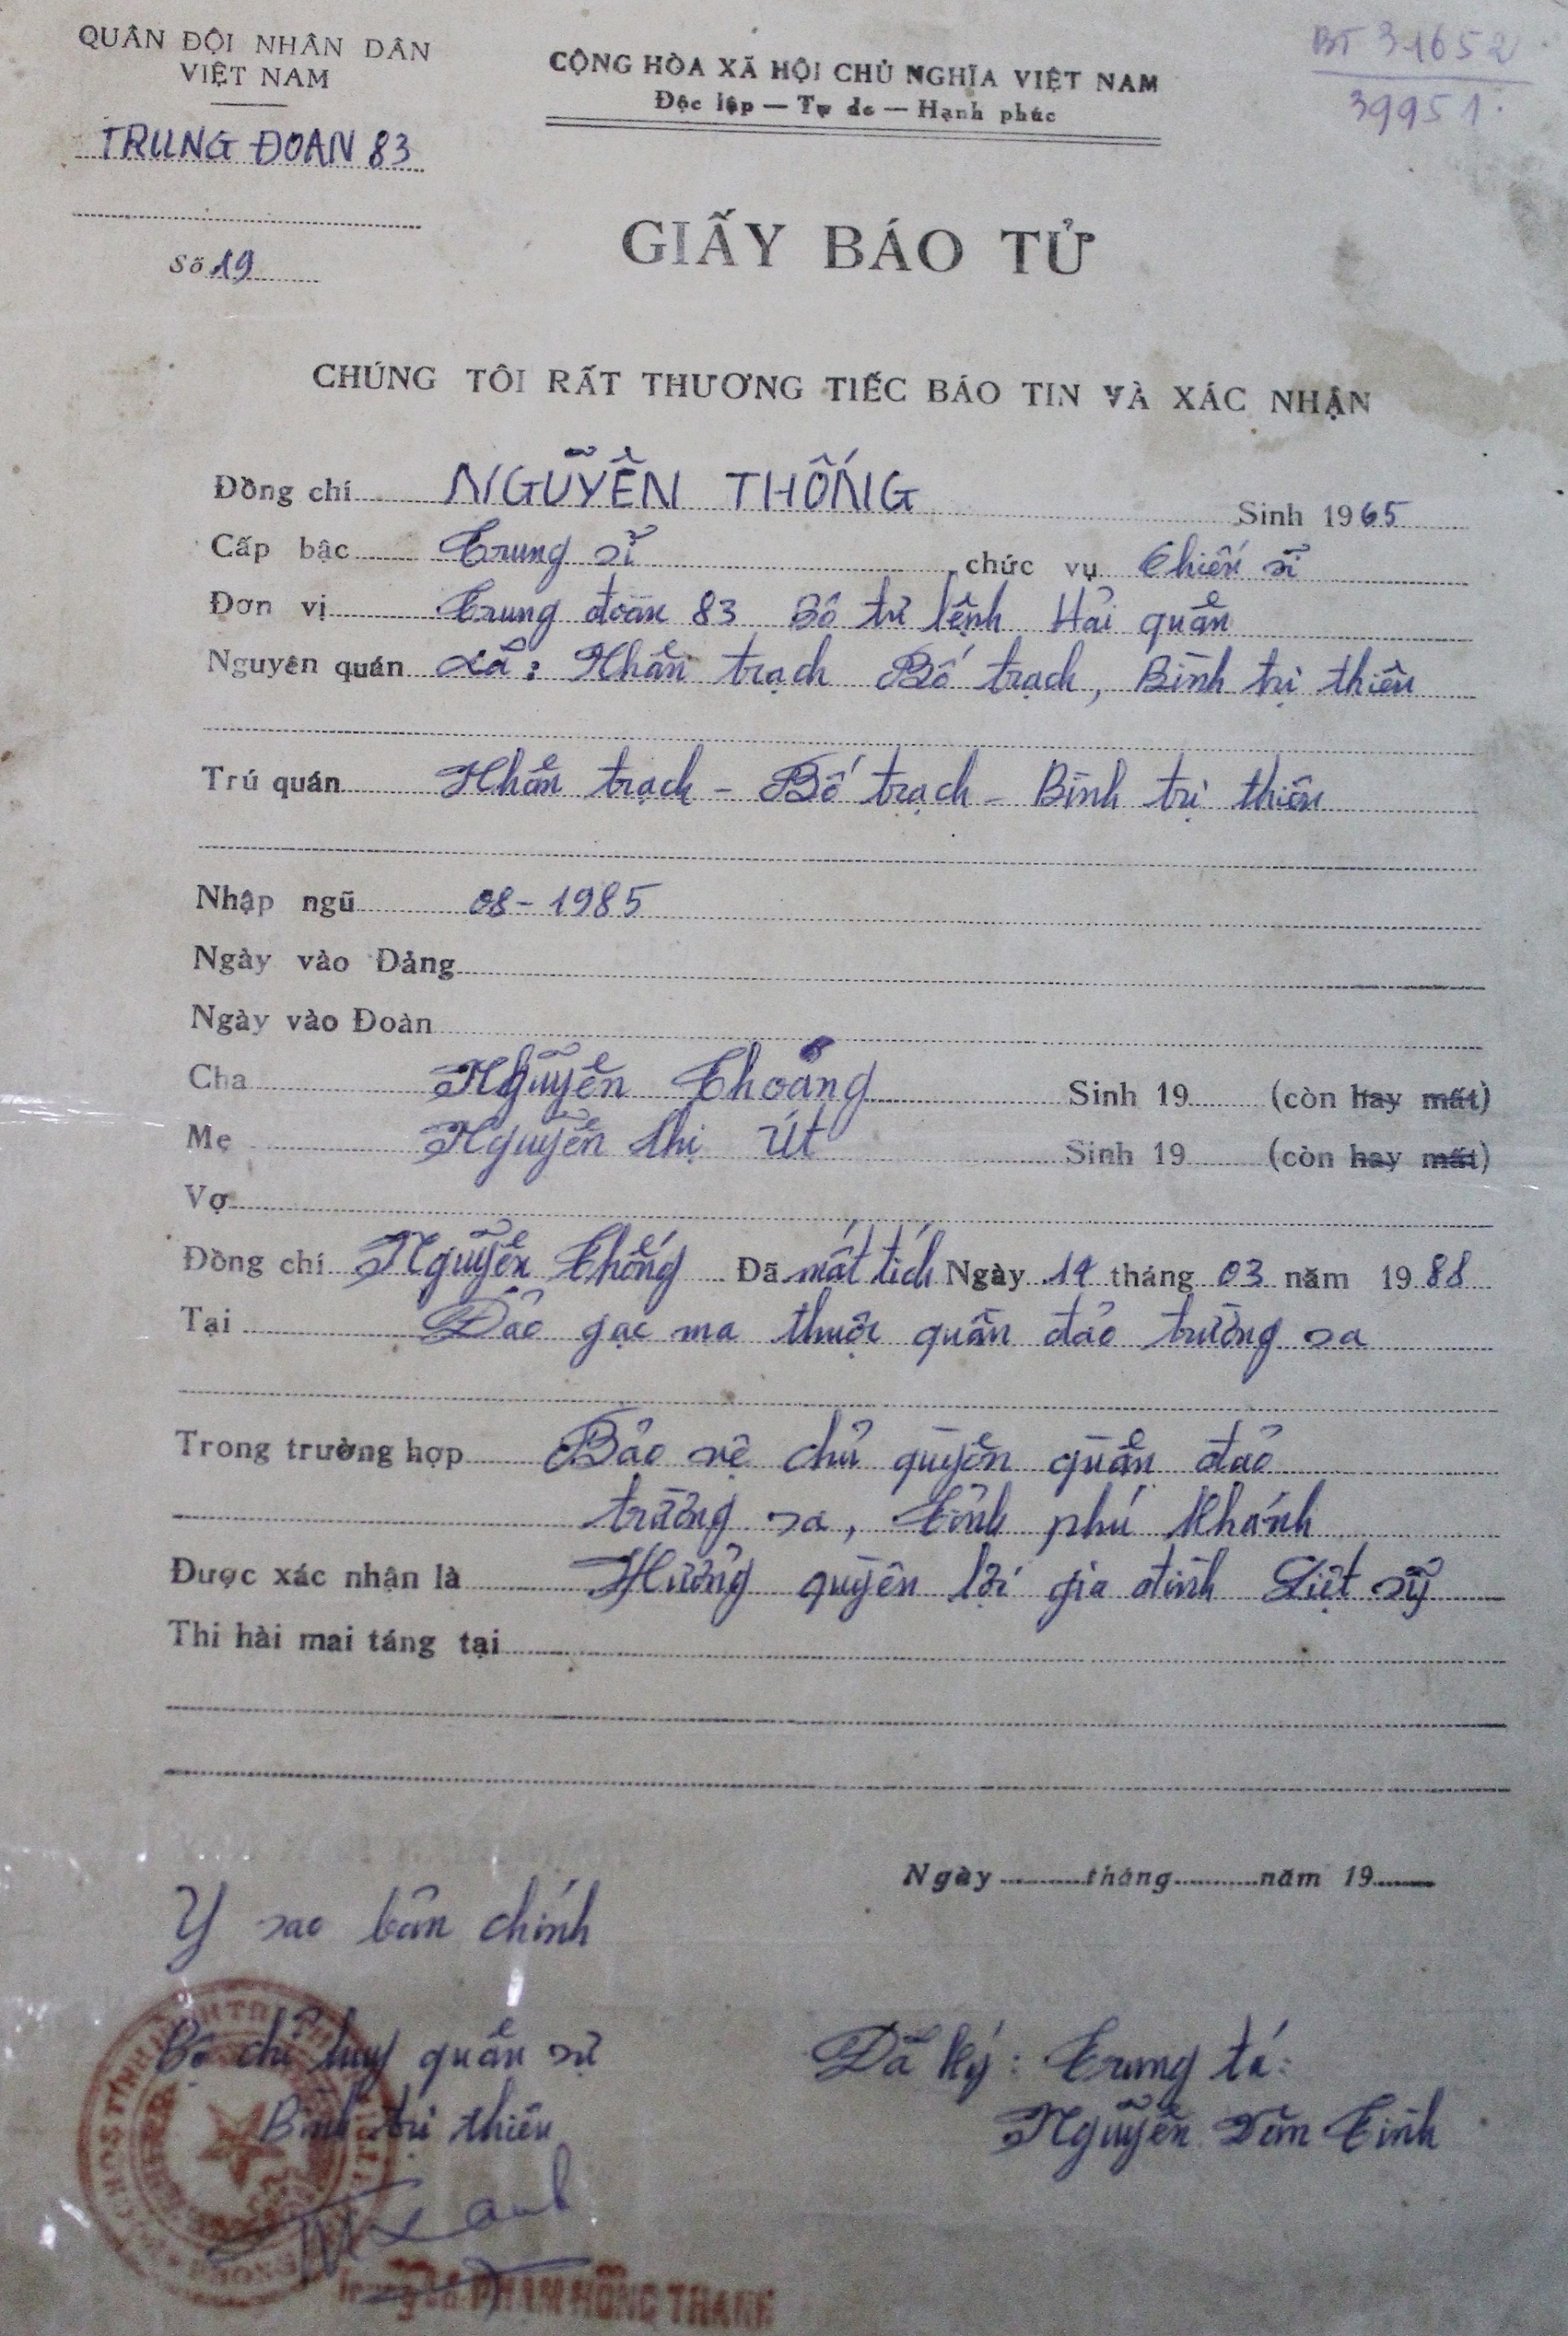 QUÂN ĐỘI NHÂN DÂN
VIỆT NAM
TRUNG ĐOAN 83
Số 19
CỘNG HÒA XÃ HỘI CHỦ NGHĨA VIỆT NAM
Độc lập — Tự do — Hạnh phúc
BT 31652
39951.
GIẤY BÁO TỬ
CHÚNG TÔI RẤT THƯƠNG TIẾC BÁO TIN VÀ XÁC NHẬN
Đồng chí NGUYỄN THỐNG Sinh 1965
Cấp bậc Trung sĩ chức vụ Chiến sĩ
Đơn vị Trung đoàn 83 Bộ tư lệnh Hải quân
Nguyên quán Xã: Nhân trạch Bố trạch, Bình trị thiên
Trú quán Nhân trạch - Bố trạch - Bình trị thiên
Nhập ngũ 08-1985
Ngày vào Đảng
Ngày vào Đoàn
Cha Nguyễn Thoảng Sinh 19 (còn hay mất)
Mẹ Nguyễn thị Út Sinh 19 (còn hay mất)
Vợ
Đồng chí Nguyễn Thống Đã mất tích Ngày 14 tháng 03 năm 1988
Tại Đảo gạc ma thuộc quần đảo trường sa
Trong trường hợp Bảo vệ chủ quyền quần đảo
trường sa, tỉnh phú khánh
Được xác nhận là Hưởng quyền lợi gia đình Liệt sỹ
Thi hài mai táng tại
Ngày tháng năm 19
Y sao bản chính
Bộ chỉ huy quân sự
Bình trị thiên
Đã ký: Trung tá:
Nguyễn Văn Tình
PHẠM HỒNG THANH